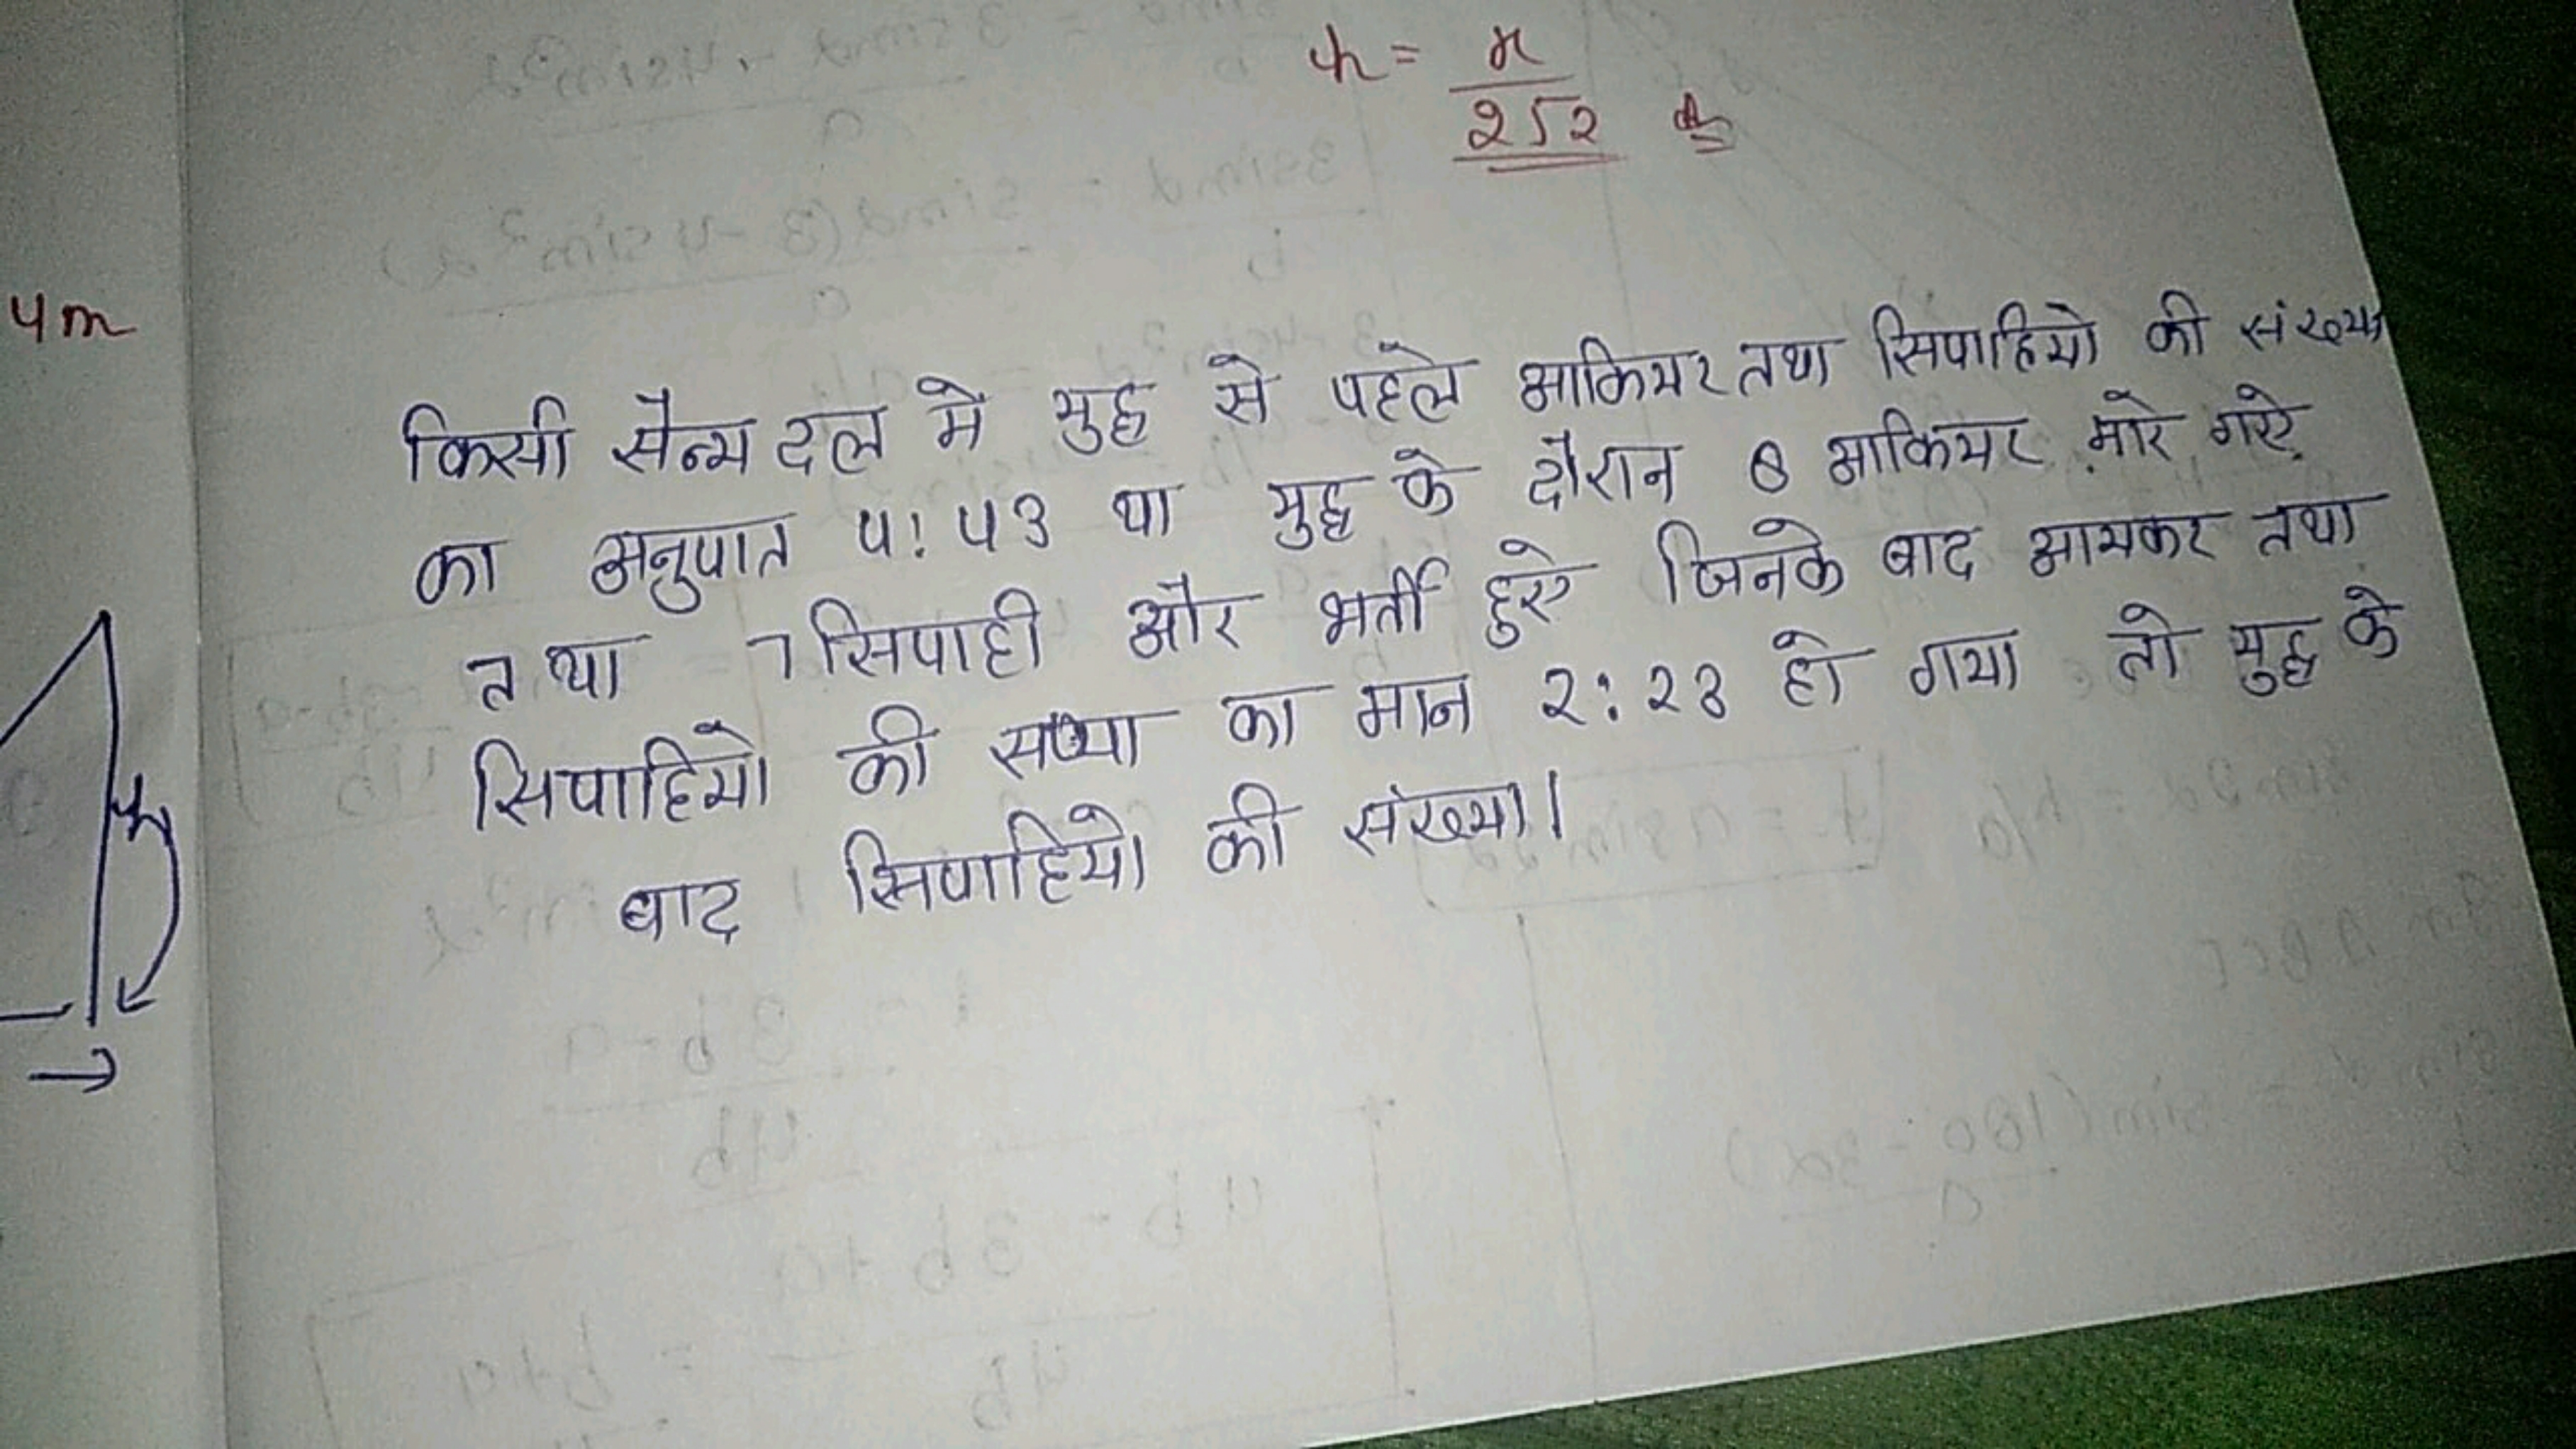 h = x / 2√2
4m
किसी सैन्य दल मे युद्ध से पहले आफियर तथा सिपाहियो की संख्या
का अनुपात 4:43 था युद्ध के दौरान 6 आफियर मारे गऐ
तथा 7 सिपाही और भर्ती हुऐ जिनके बाद आयकर तथा
सिपाहियो की सख्या का मान 2:23 हो गया तो युद्ध के
बाद सिपाहियो की संख्या।
h